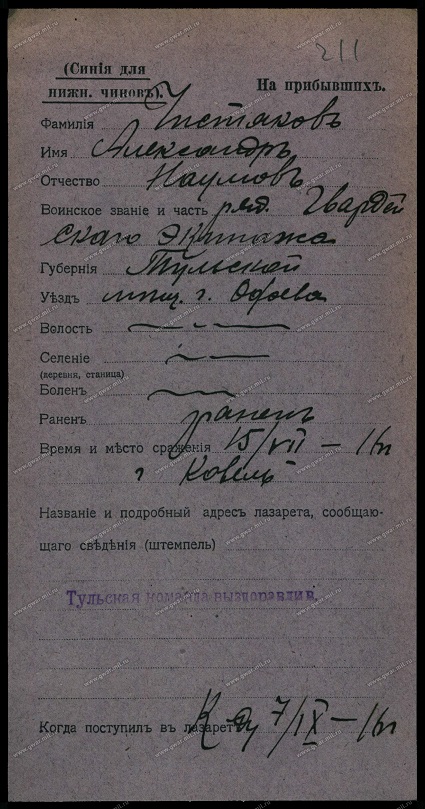 211
(Синія для
нижн. чиновъ).
На прибывшихъ.
Фамилія Чистяковъ
Имя Александръ
Отчество Наумовъ
Воинское званіе и часть ряд. Гвардей
скаго Экипажа
Губернія Тульской
Уѣздъ мѣщ. г. Одоева
Волость
Селеніе
(деревня, станица)
Боленъ
Раненъ раненъ
Время и мѣсто сраженія 15/VII – 16 г
г Ковель
Названіе и подробный адресъ лазарета, сообщаю-
щаго свѣдѣнія (штемпель)
Тульская команда выздоравлив.
Когда поступилъ въ лазаретъ 7/IX – 16 г
www.gwar.mil.ru